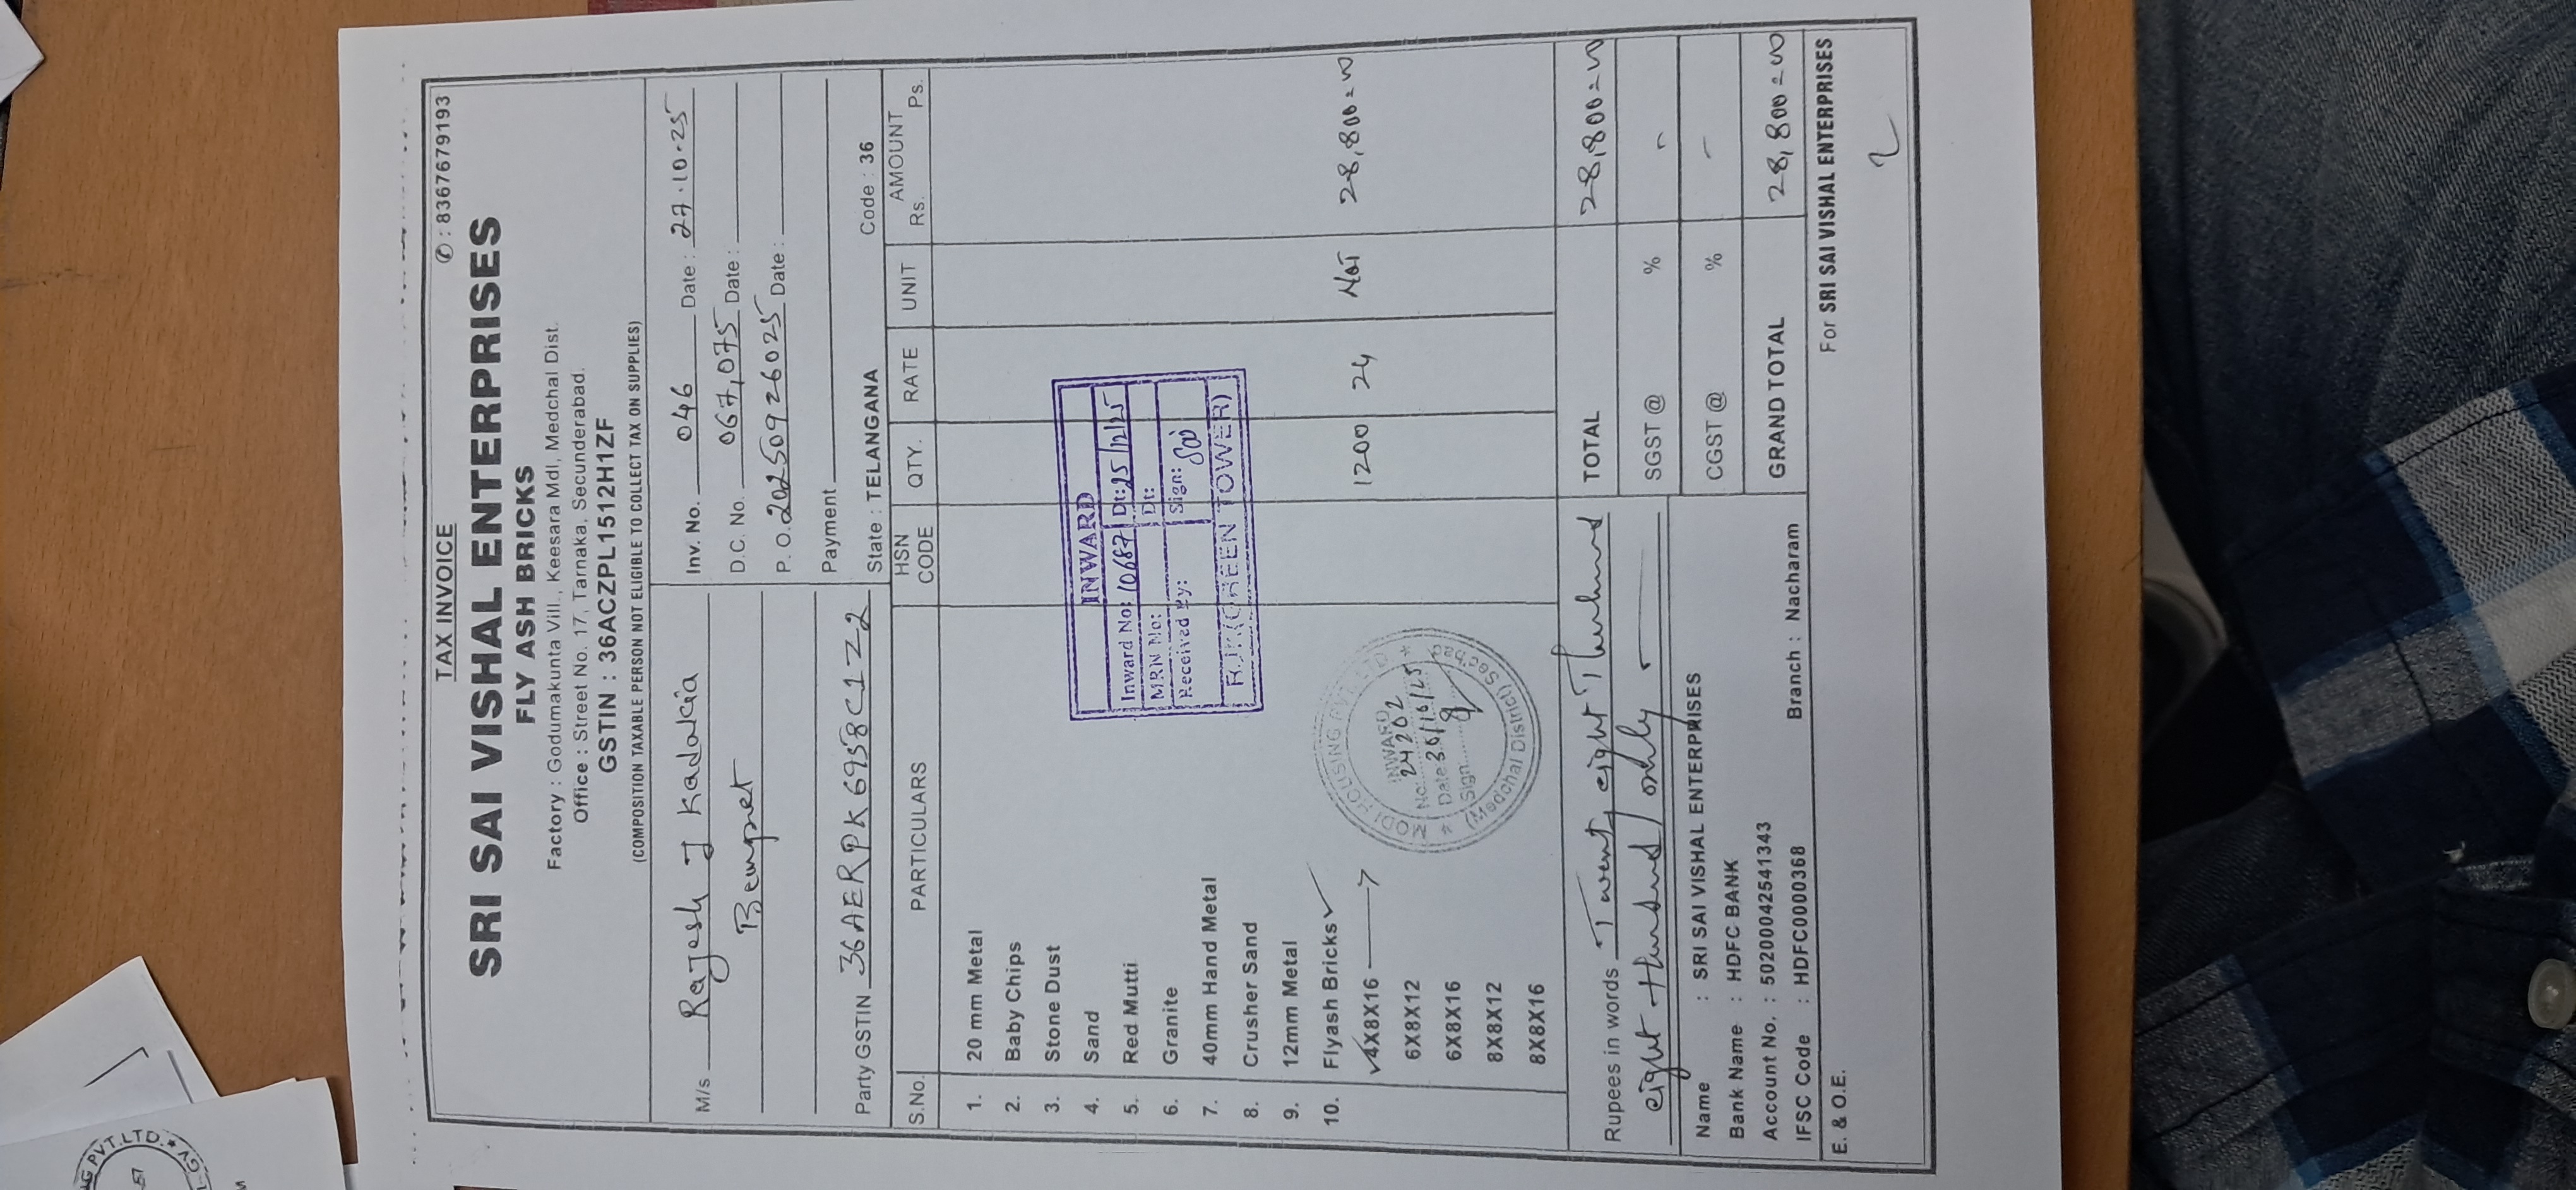 TAX INVOICE
✆ : 8367679193
SRI SAI VISHAL ENTERPRISES
FLY ASH BRICKS
Factory : Godumakunta Vill., Keesara Mdl, Medchal Dist.
Office : Street No. 17, Tarnaka, Secunderabad.
GSTIN : 36ACZPL1512H1ZF
(COMPOSITION TAXABLE PERSON NOT ELIGIBLE TO COLLECT TAX ON SUPPLIES)
M/s Rajesh J Kadakia
Begumpet
Party GSTIN 36AERPK6958C1Z2
Inv. No. 046 Date : 27.10.25
D.C. No. 067,075 Date :
P. O. 20250926025 Date :
Payment
State : TELANGANA Code : 36
S.No. PARTICULARS HSN CODE QTY. RATE UNIT AMOUNT Rs. Ps.
1. 20 mm Metal
2. Baby Chips
3. Stone Dust
4. Sand
5. Red Mutti
6. Granite
7. 40mm Hand Metal
8. Crusher Sand
9. 12mm Metal
10. Flyash Bricks
4X8X16 1200 24 28,800=00
6X8X12
6X8X16
8X8X12
8X8X16
INWARD
Inward No: 10687 Dt:
MRN No: Dt:
Received By: Sign: Sai
GREEN TOWER)
MODI HOUSING PVT. LTD
INWARD
No: 24202
Date 30/10/25
Sign
(Medchal District) Sec'bad
Rupees in words Twenty eight Thousand
eight Hundred only
TOTAL 28,800=00
SGST @ % -
CGST @ % -
GRAND TOTAL 28,800=00
Name : SRI SAI VISHAL ENTERPRISES
Bank Name : HDFC BANK
Account No. : 50200042541343
IFSC Code : HDFC0000368 Branch : Nacharam
E. & O.E.
For SRI SAI VISHAL ENTERPRISES
PVT.LTD.